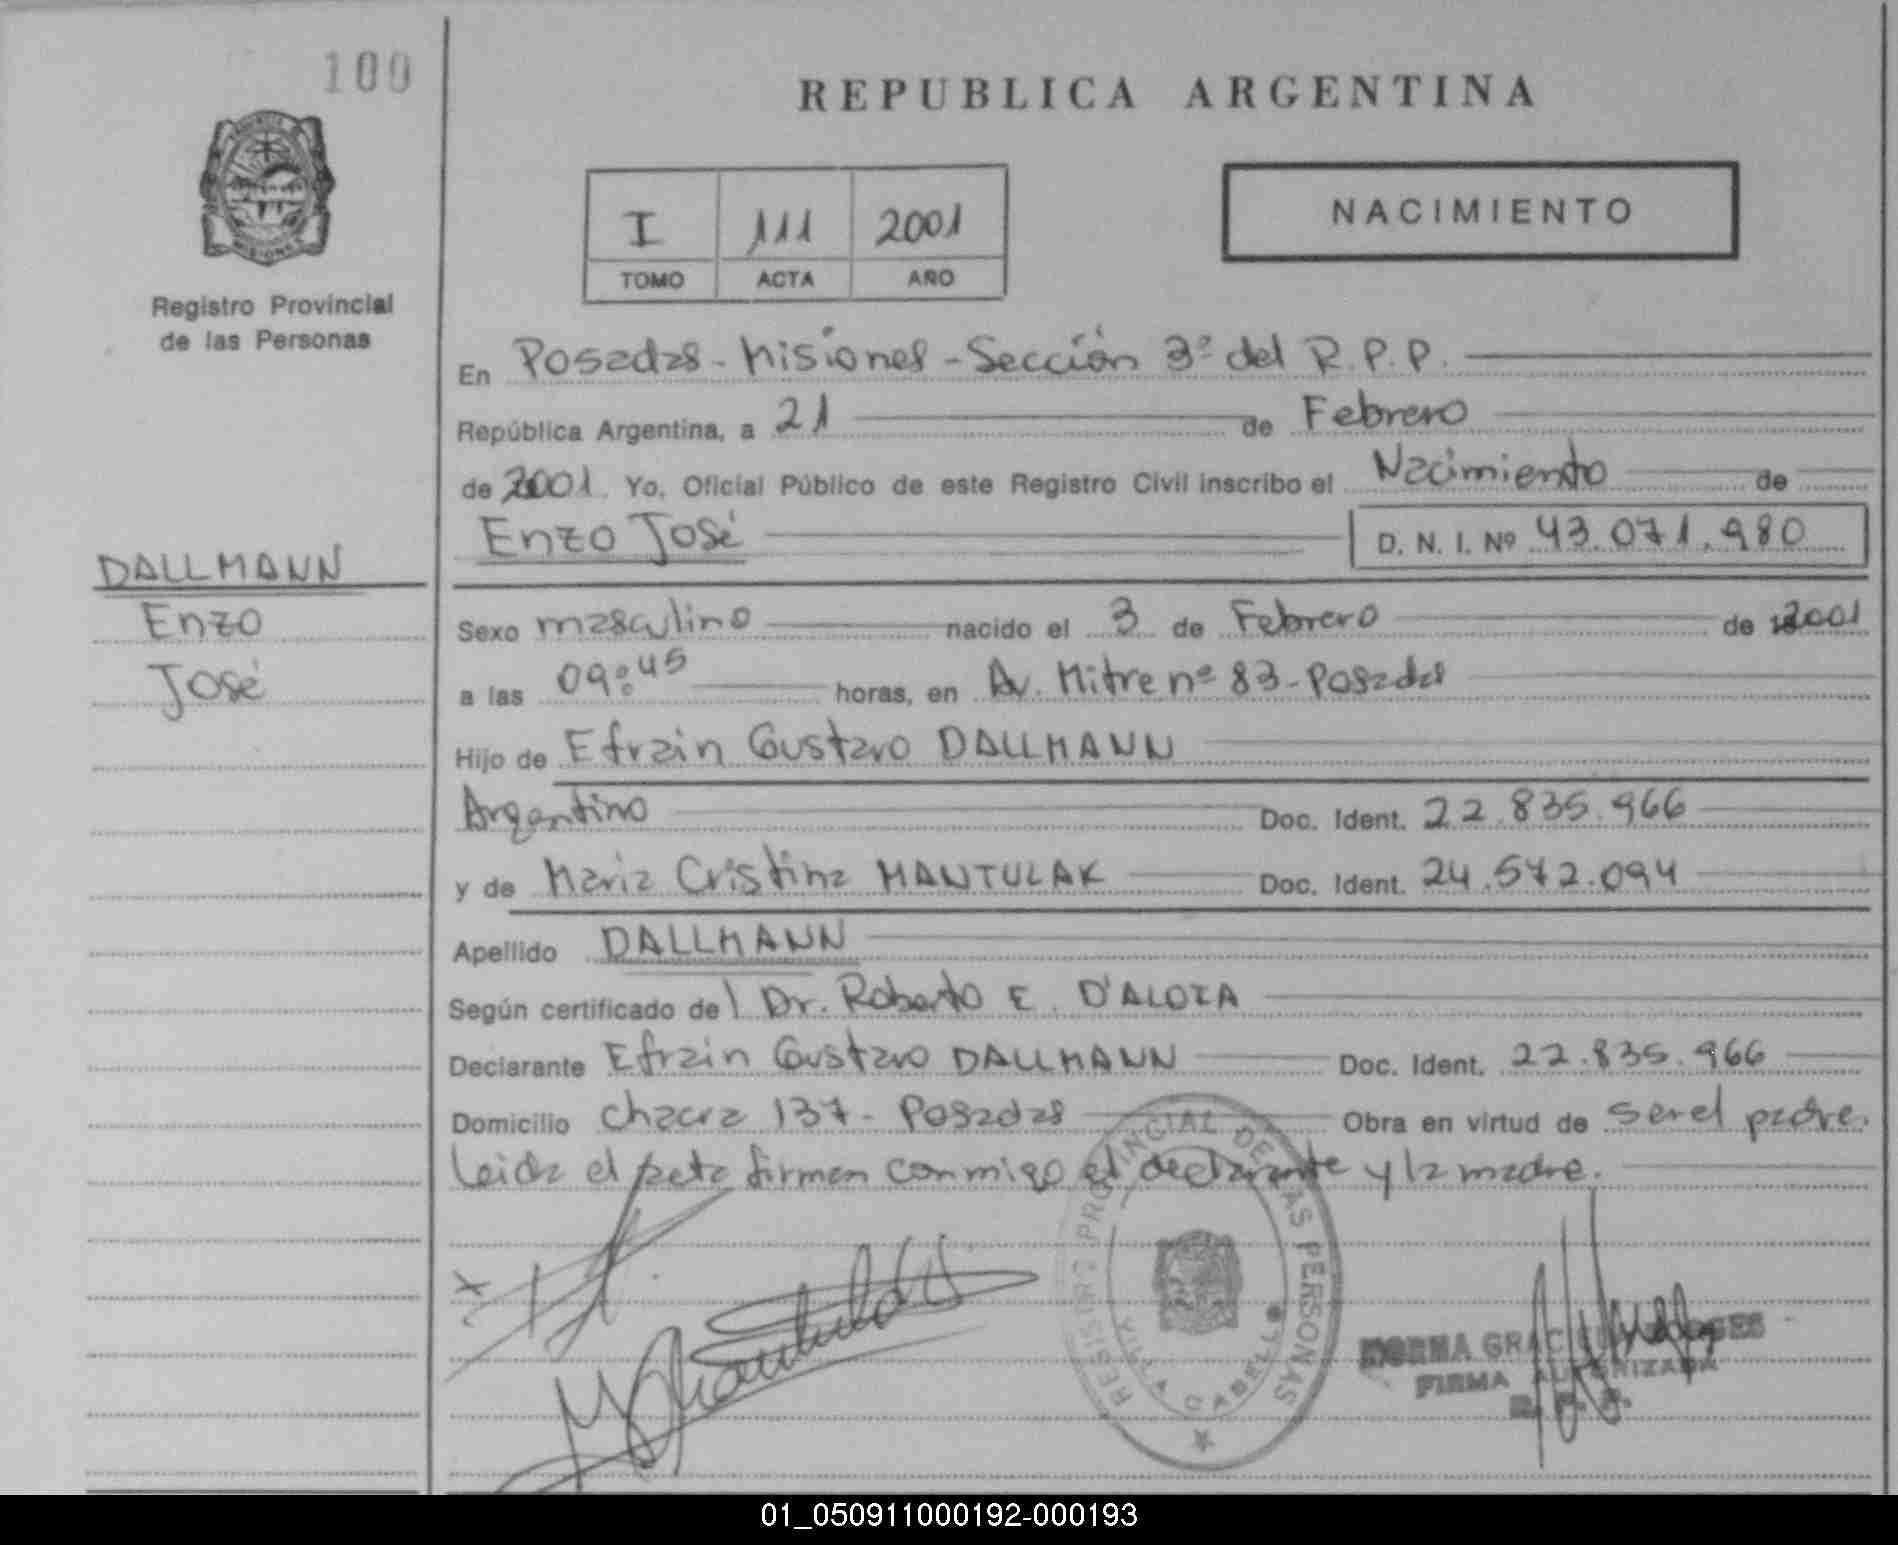 100
REPUBLICA ARGENTINA
PROVINCIA DE MISIONES
Registro Provincial
de las Personas
I 111 2001
TOMO ACTA AÑO
NACIMIENTO
En Posadas - Misiones - Sección 3ª del R.P.P.
República Argentina, a 21 de Febrero
de 2001. Yo, Oficial Público de este Registro Civil inscribo el Nacimiento de
Enzo José D. N. I. Nº 43.071.980
DALLMANN
Enzo
José
Sexo masculino nacido el 3 de Febrero de 2001
a las 09:45 horas, en Av. Mitre nº 83 - Posadas
Hijo de Efrain Gustavo DALLMANN
Argentino Doc. Ident. 22.835.966
y de Maria Cristina MANTULAK Doc. Ident. 24.572.094
Apellido DALLMANN
Según certificado del Dr. Roberto E. D'ALOIA
Declarante Efrain Gustavo DALLMANN Doc. Ident. 22.835.966
Domicilio Chacra 137 - Posadas Obra en virtud de ser el padre.
Leida el acta firman conmigo el declarante y la madre.
REGISTRO PROVINCIAL DE LAS PERSONAS
VILLA CABELLO
NORMA GRACIELA
FIRMA AUTORIZADA
R. P. P.
01_050911000192-000193